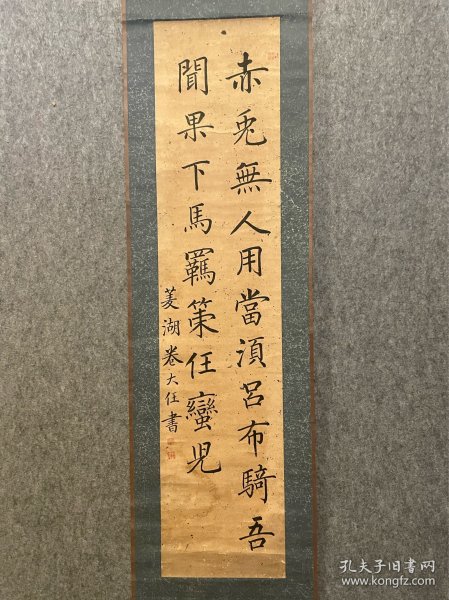 赤兎無人用當須呂布騎吾
聞果下馬羈策任蠻児
菱湖卷大任書
孔夫子旧书网
www.kongfz.com